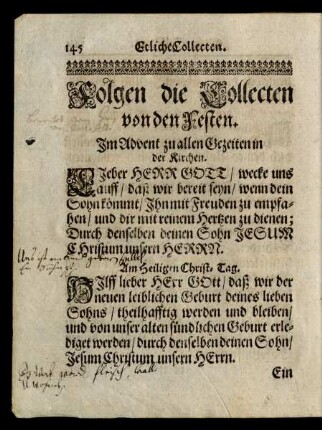 145 Etliche Collecten.
Folgen die Collecten
von den Festen.
Im Advent zu allen Gezeiten in
der Kirchen.
LIeber HERR GOTT / wecke uns
auff / daß wir bereit seyn / wenn dein
Sohn kömmt / Ihn mit Freuden zu empfa-
hen / und dir mit reinem Hertzen zu dienen;
Durch denselben deinen Sohn JESUM
CHristum unsern HERRN.
Am Heiligen Christ-Tag.
HIlff lieber HErr GOtt / daß wir der
neuen leiblichen Geburt deines lieben
Sohns / theilhafftig werden und bleiben /
und von unser alten sündlichen Geburt erle-
diget werden / durch denselben deinen Sohn /
Jesum Christum unsern HErrn.
Ein